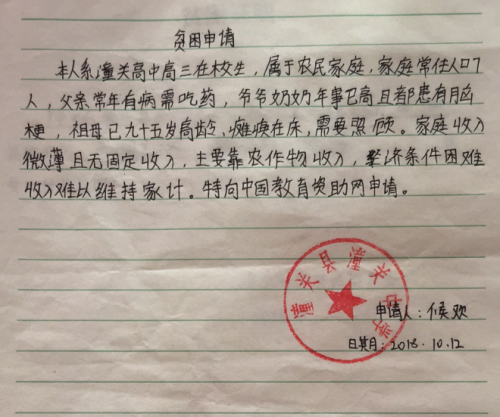 贫困申请
本人系潼关高中高三在校生，属于农民家庭，家庭常住人口7
人，父亲常年有病需吃药，爷爷奶奶年事已高且都患有脑
梗，祖母已九十五岁高龄，瘫痪在床，需要照顾。家庭收入
微薄且无固定收入，主要靠农作物收入，经济条件困难
收入难以维持家计。特向中国教育资助网申请。
潼关县潼关
申请人：候欢
日期：2018.10.12